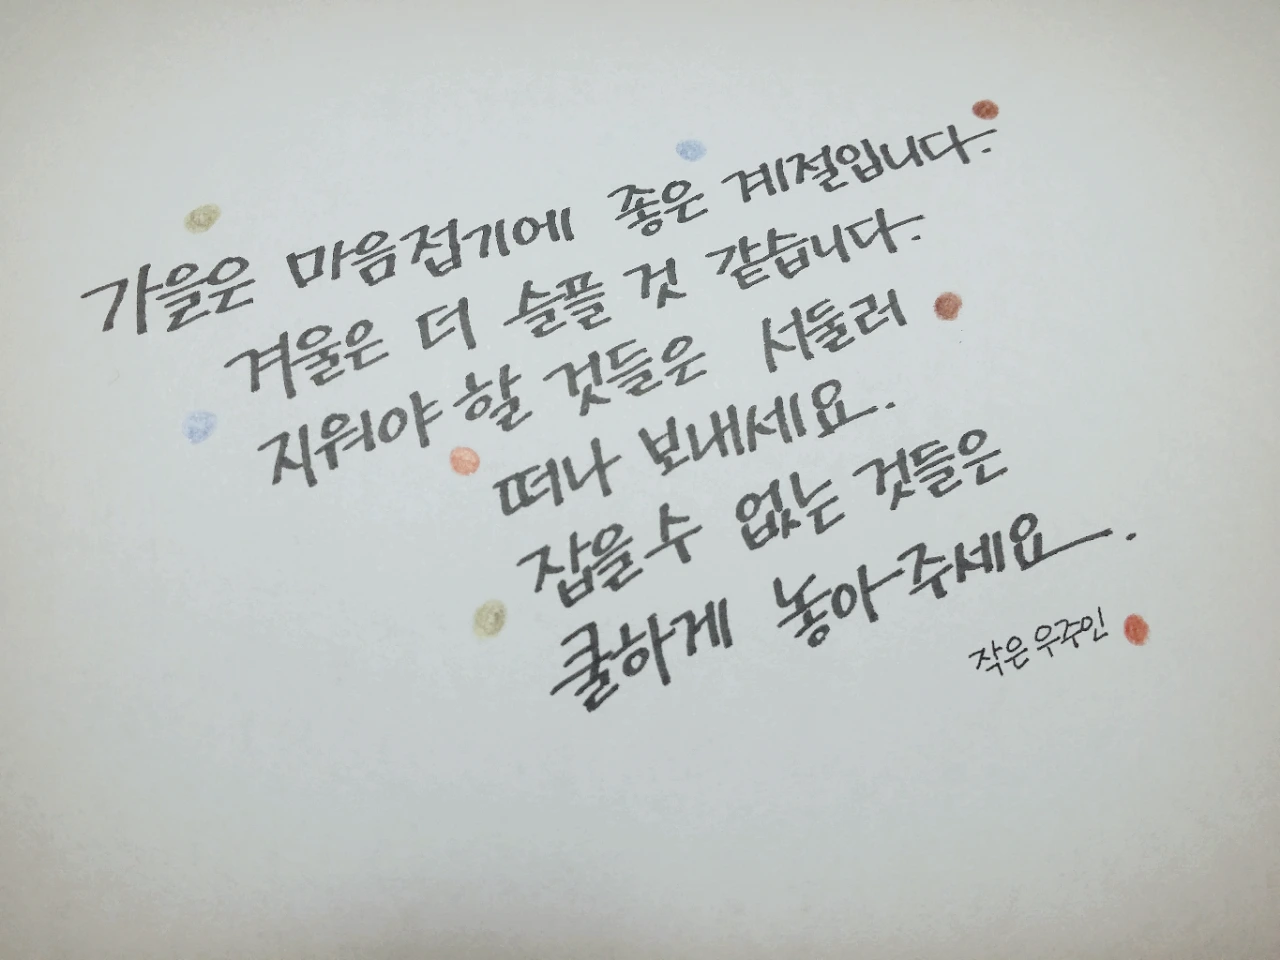 가을은 마음접기에 좋은 계절입니다.
겨울은 더 슬플 것 같습니다.
지워야 할 것들은 서둘러
떠나 보내세요.
잡을 수 없는 것들은
쿨하게 놓아주세요.
작은 우주인